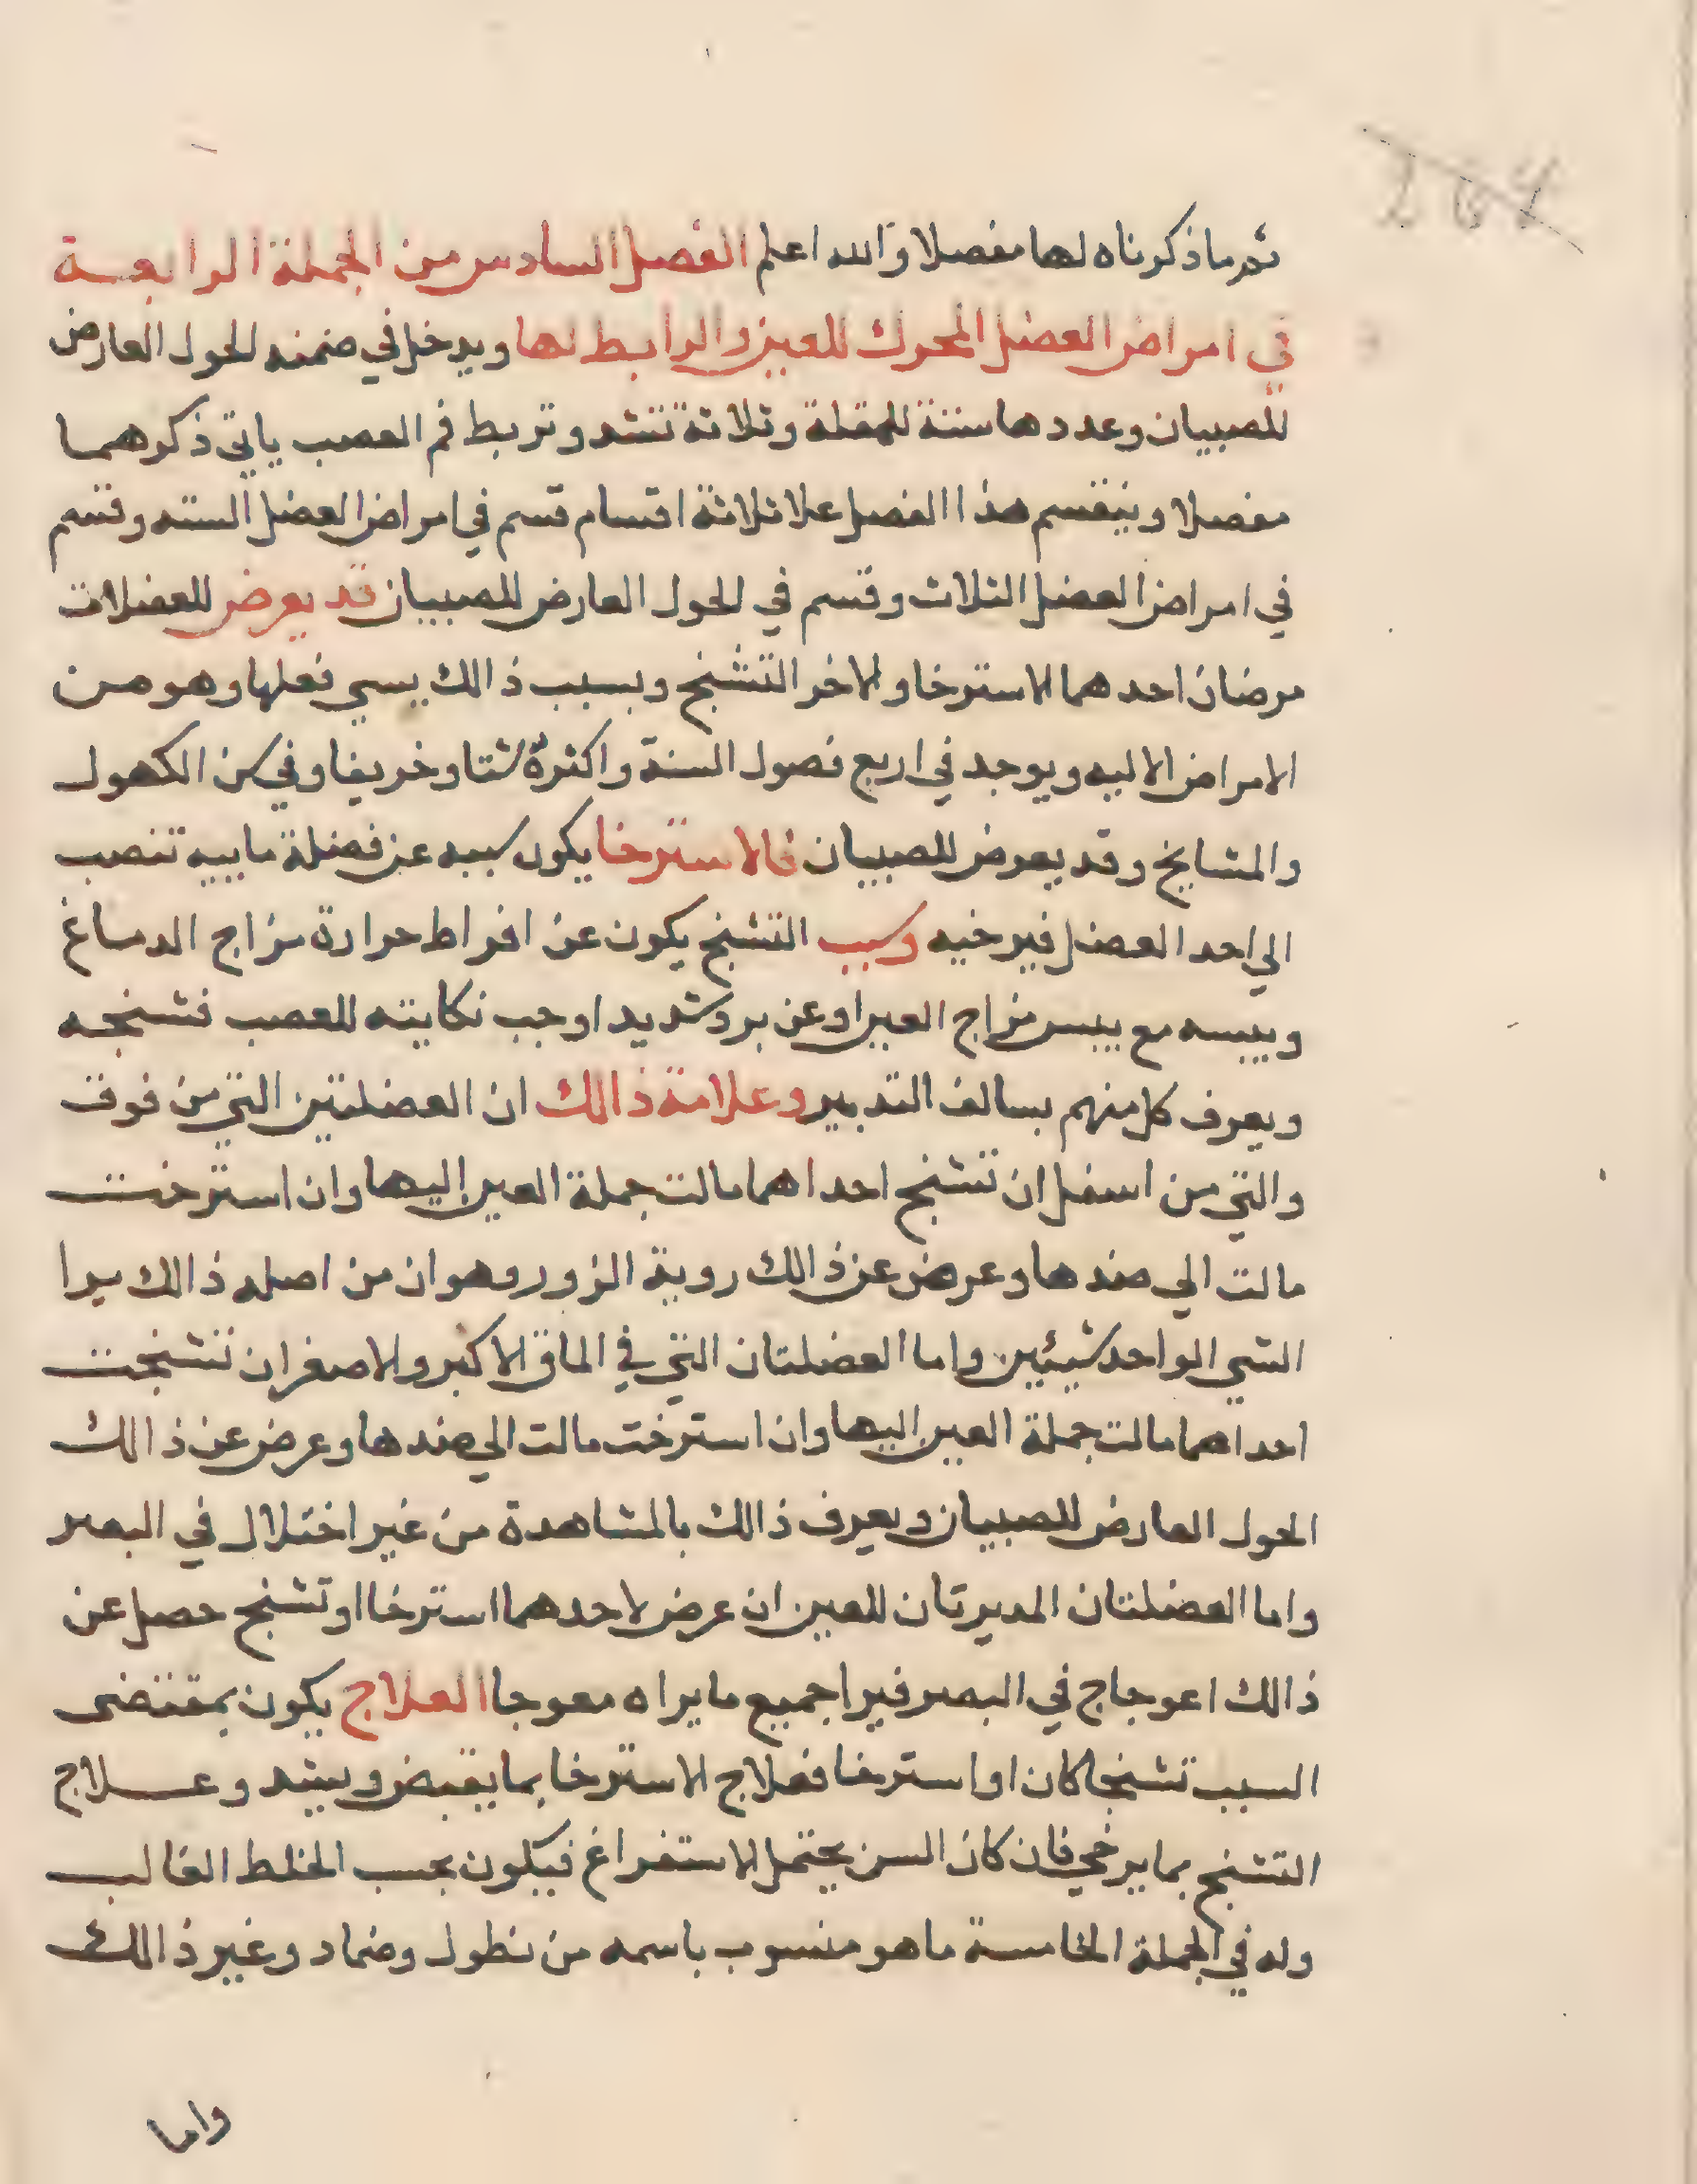 ثم ما ذكرناه لها مفصلا والله اعلم الفصل السادس من الجملة الرابعة
في امراض العضل المحرك للعين والرابط لها ويدخل في ضمنه الحول العارض
للصبيان وعددها ستة للمقلة وثلاثة تشد وتربط فم العصب ياتي ذكرهما
مفصلا وينقسم هذا الفصل علا ثلاثة اقسام قسم في امراض العضل السته وقسم
في امراض العضل الثلاث وقسم في الحول العارض للصبيان قد يعرض للعضلات
مرضان احدهما الاسترخا والاخر التشنج وبسبب ذالك يسي فعلها وهو من
الامراض الاليه ويوجد في اربع فصول السنة واكثرة شتا وخريفا وفي سن الكهول
والمشايخ وقد يعرض للصبيان فالاسترخا يكون سببه عن فضلة ماييه تنصب
الي احد العضل فيرخيه وسبب التشنج يكون عن افراط حرارة مزاج الدماغ
ويبسه مع يبس مزاج العين اوعن برد شديد اوجب نكايته للعصب فشنجه
ويعرف كل منهم بسالف التدبير وعلامة ذالك ان العضلتين التي من فوق
والتي من اسفل ان تشنج احداهما مالت جملة العين اليها وان استرخت
مالت الي ضدها وعرض عن ذالك روية الزور وهو ان من اصله ذالك يرا
الشي الواحد شيئين واما العضلتان التي في الماق الاكبر والاصغر ان تشنجت
احداهما مالت جملة العين اليها وان استرخت مالت الي ضدها وعرض عن ذالك
الحول العارض للصبيان ويعرف ذالك بالمشاهدة من غير اختلال في البصر
واما العضلتان المديرتان للعين ان عرض لاحدهما استرخا او تشنج حصل عن
ذالك اعوجاج في البصر فيرا جميع ما يراه معوجا العلاج يكون بمقتضى
السبب تشنجا كان او استرخا فعلاج الاسترخا بما يقبض ويشد وعلاج
التشنج بما يرخي فان كان السن يحتمل الاستفراغ فيكون بحسب الخلط الغالب
وله في الجملة الخامسة ما هو منسوب باسمه من نطول وضماد وغير ذالك
واما